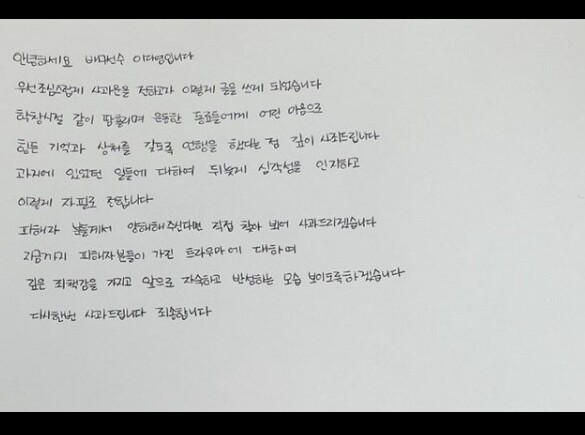 안녕하세요 배구선수 이다영입니다
우선 조심스럽게 사과문을 전하고자 이렇게 글을 쓰게 되었습니다
학창시절 같이 땀 흘리며 운동한 동료들에게 어린 마음으로
힘든 기억과 상처를 갖도록 언행을 했다는 점 깊이 사죄드립니다
과거에 있었던 일들에 대하여 뒤늦게 심각성을 인지하고
이렇게 자필로 전합니다
피해자 분들께서 양해해주신다면 직접 찾아 뵈어 사과드리겠습니다
지금까지 피해자분들이 가진 트라우마에 대하여
깊은 죄책감을 가지고 앞으로 자숙하고 반성하는 모습 보이도록하겠습니다
다시한번 사과드립니다 죄송합니다